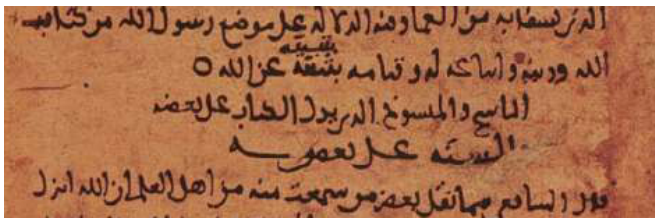 به من العما وفيه الدلالة على موضع رسول الله من كتاب
الله ودينه واتباعه له وقيامه بتبيينه عن الله
الناسخ والمنسوخ الذي يدل الكتاب على بعضه
والسنة على بعضه
قال الشافعي مما نقل بعض من سمعت منه من اهل العلم ان الله انزل